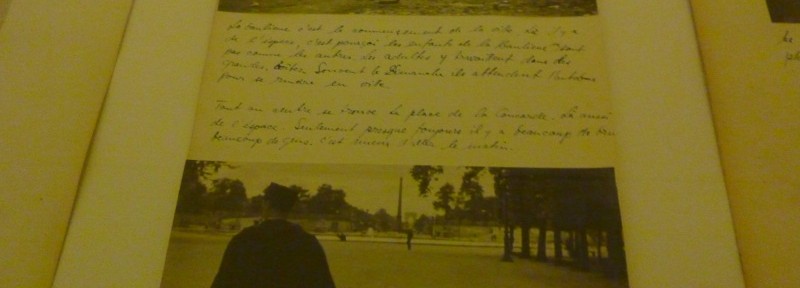 La banlieue c'est le commencement de la ville. Là il y a
de l'espace, c'est pourquoi les enfants de la banlieue sont
pas comme les autres. Les adultes y travaillent dans des
grandes boîtes. Souvent le Dimanche ils attendent l'autobus
pour se rendre en ville.
Tout au centre se trouve la place de la Concorde. Là aussi
de l'espace. Seulement presque toujours il y a beaucoup de
beaucoup de gens. C'est mieux d'aller le matin.